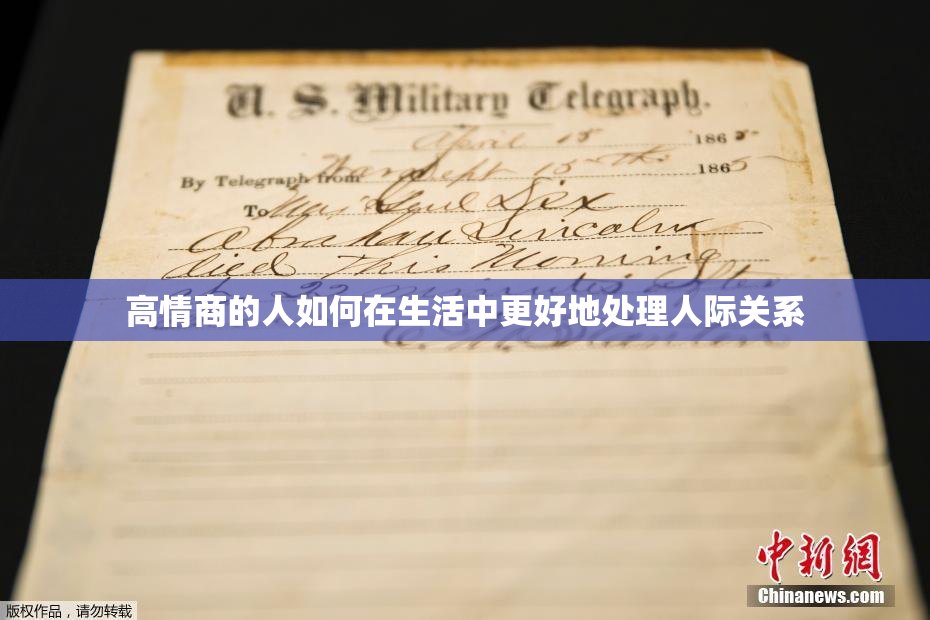 U. S. Military Telegraph.
April 15 1865
By Telegraph from War Dept 15th 1865
To Maj Genl Dix
Abraham Lincoln
died This Morning
at 22 minutes after
高情商的人如何在生活中更好地处理人际关系
E. M. Stanton
中新網
Chinanews.com
版权作品，请勿转载